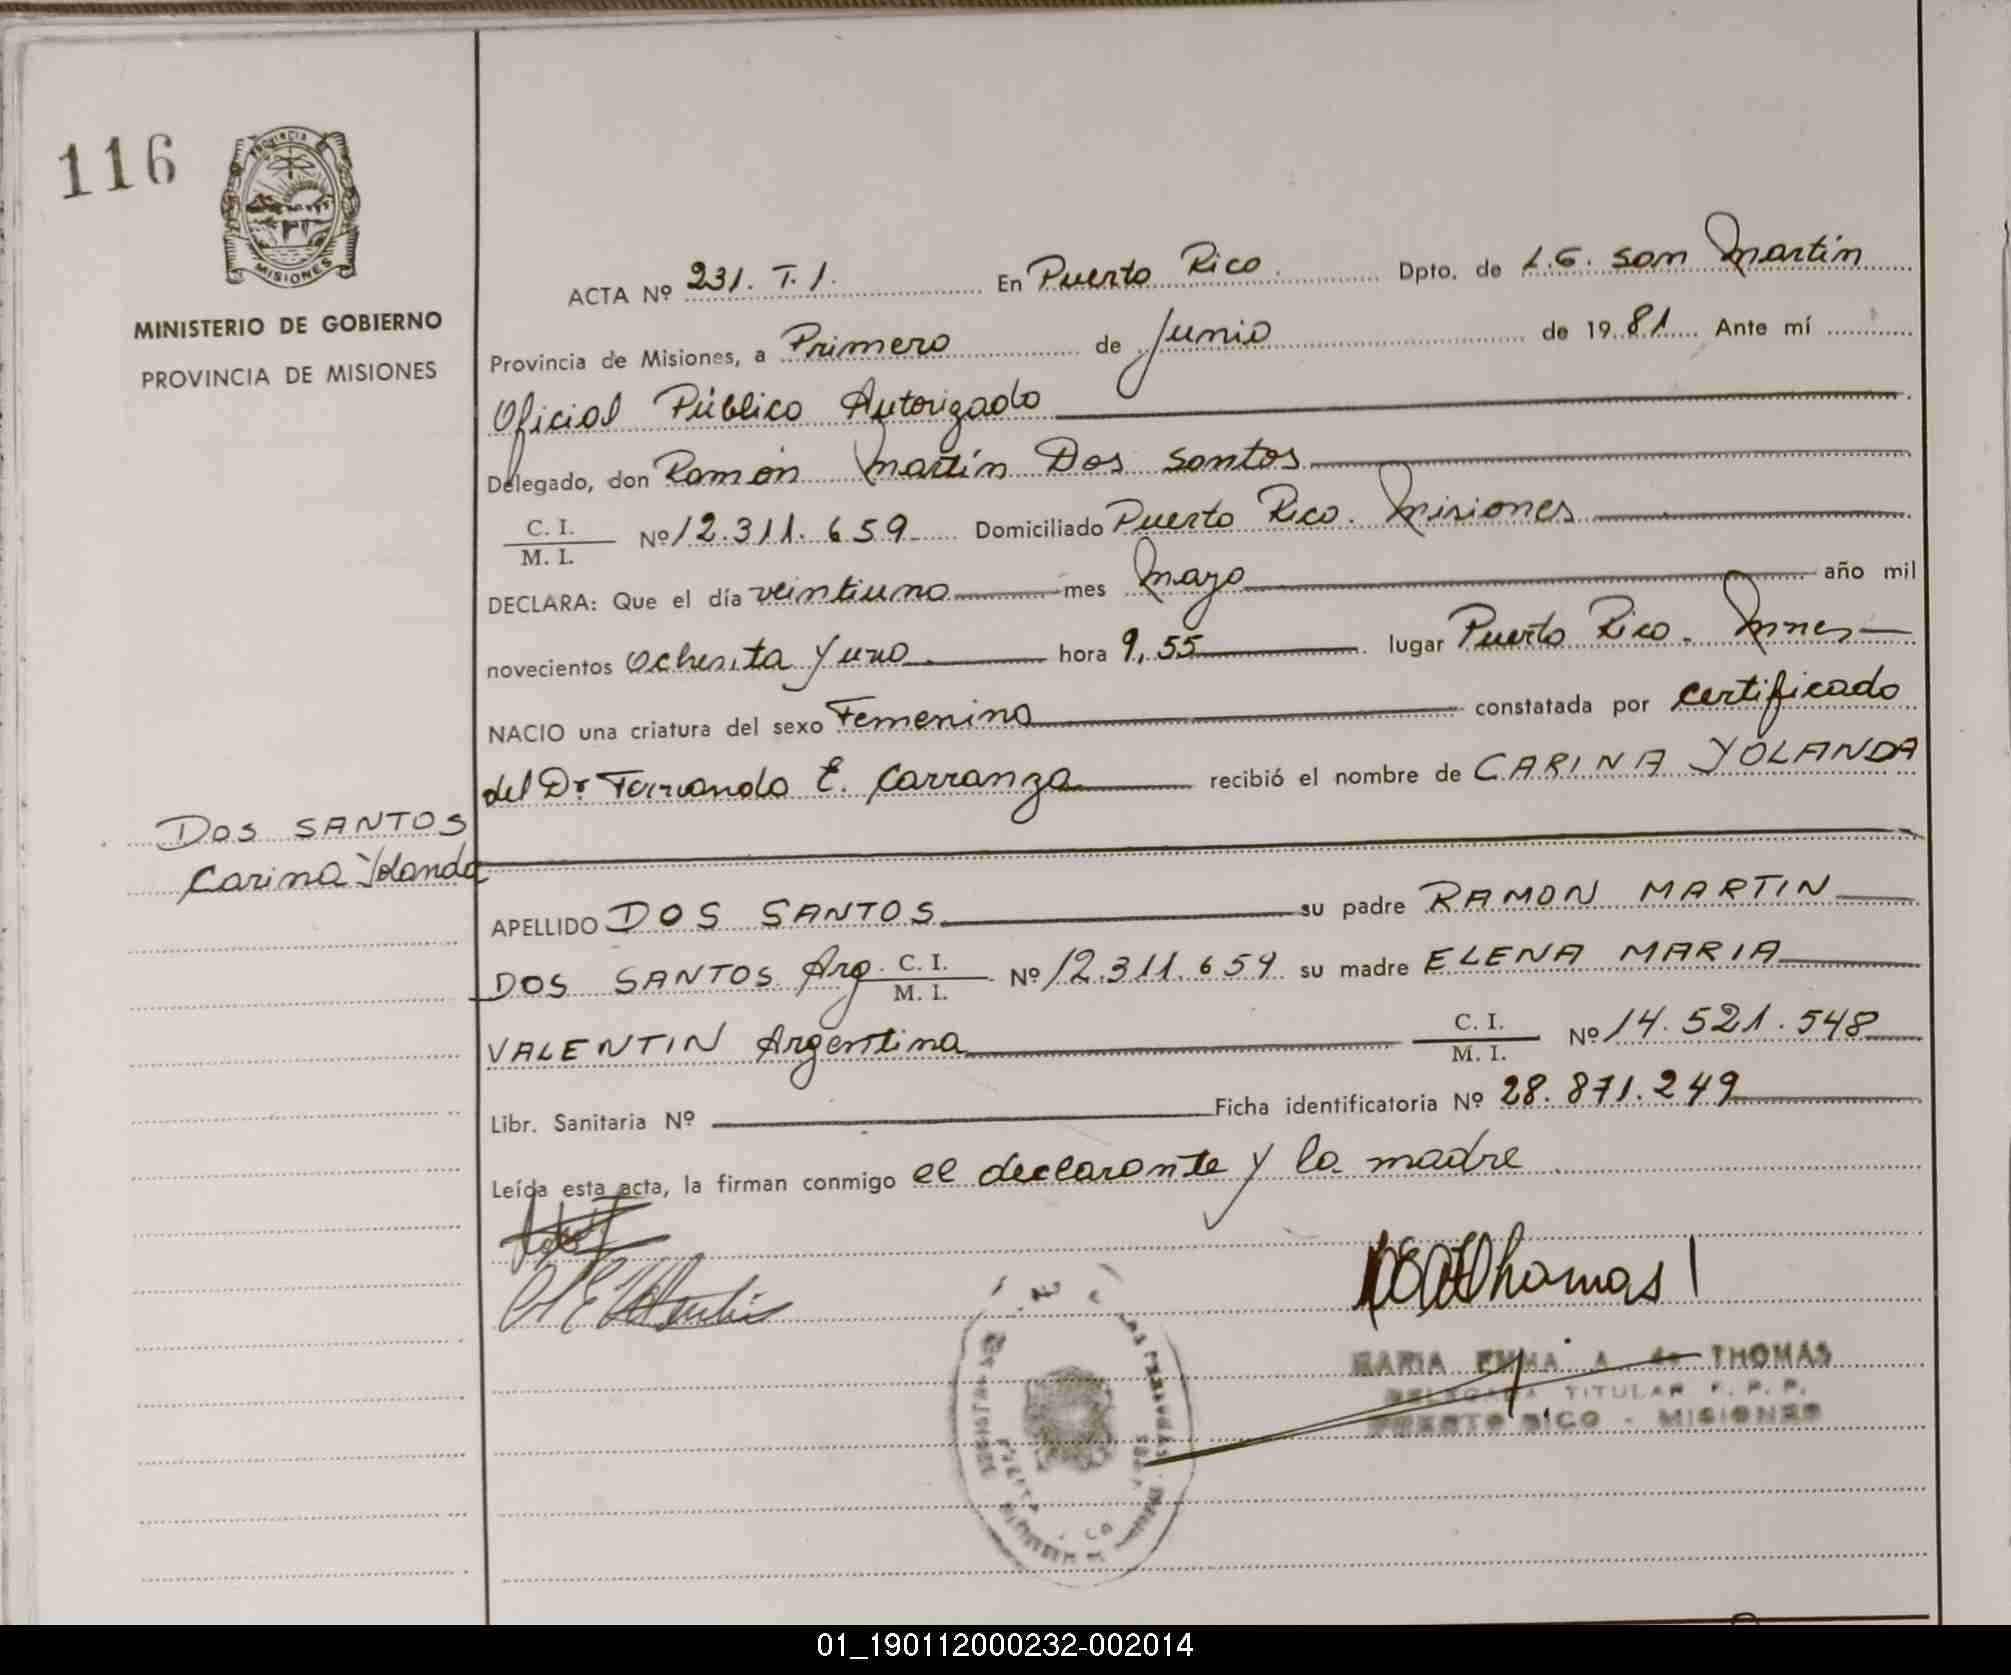 116
PROVINCIA
MISIONES
MINISTERIO DE GOBIERNO
PROVINCIA DE MISIONES
ACTA Nº 231. T. 1. En Puerto Rico. Dpto. de L.G. San Martín
Provincia de Misiones, a Primero de Junio de 19 81 Ante mí
Oficial Público Autorizado
Delegado, don Ramón Martín Dos Santos
C. I.
M. I. Nº 12.311.659 Domiciliado Puerto Rico. Misiones
DECLARA: Que el día veintiuno mes Mayo año mil
novecientos Ochenta y uno hora 9,55 lugar Puerto Rico - Mnes
NACIO una criatura del sexo Femenino constatada por certificado
del Dr Fernando E. Carranza recibió el nombre de CARINA YOLANDA
DOS SANTOS
Carina Yolanda
APELLIDO DOS SANTOS su padre RAMON MARTIN
DOS SANTOS Arg. C. I.
M. I. Nº 12.311.659 su madre ELENA MARIA
VALENTIN Argentina C. I.
M. I. Nº 14.521.548
Libr. Sanitaria Nº Ficha identificatoria Nº 28.871.249
Leída esta acta, la firman conmigo el declarante y la madre
Thomas
MARIA EMMA A. de THOMAS
DELEGADA TITULAR R. P. P.
PUERTO RICO - MISIONES
01_190112000232-002014